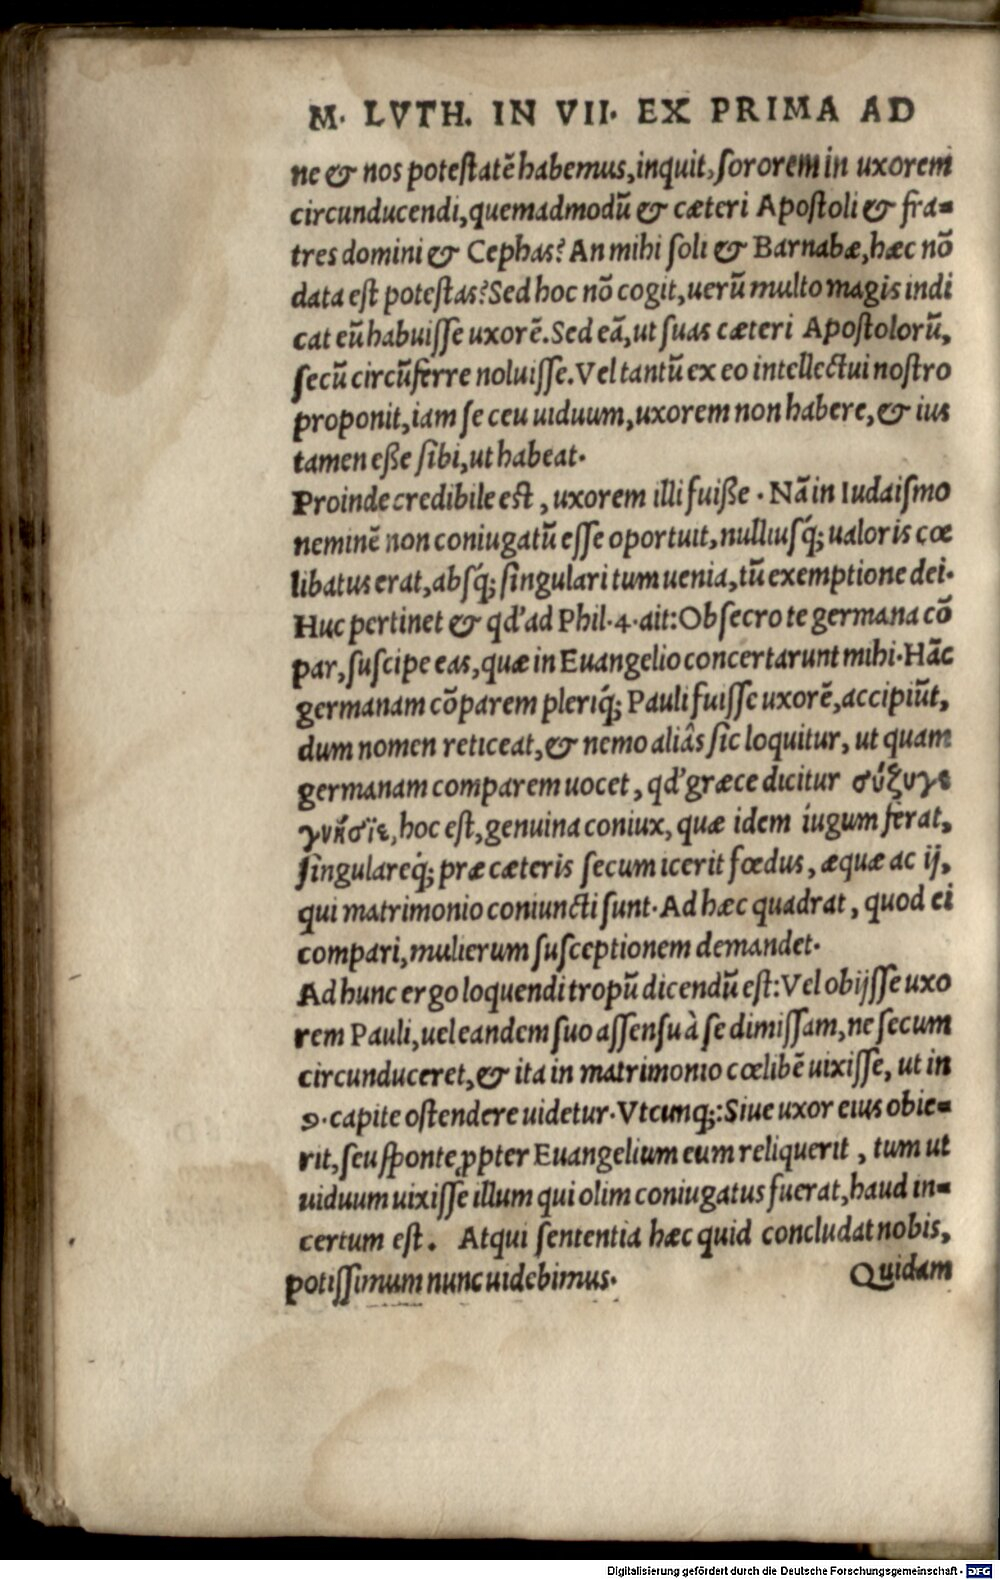 M. LVTH. IN VII. EX PRIMA AD
ne & nos potestatẽ habemus, inquit, sororem in uxorem
circunducendi, quemadmodũ & cæteri Apostoli & fra=
tres domini & Cephas? An mihi soli & Barnabæ, hæc nõ
data est potestas? Sed hoc nõ cogit, uerũ multo magis indi
cat eũ habuisse uxorẽ. Sed eã, ut suas cæteri Apostolorũ,
secũ circũferre noluisse. Vel tantũ ex eo intellectui nostro
proponit, iam se ceu uiduum, uxorem non habere, & ius
tamen eße sibi, ut habeat.
Proinde credibile est, uxorem illi fuiße. Nã in Iudaismo
neminẽ non coniugatũ esse oportuit, nulliusq́; ualoris cœ
libatus erat, absq́; singulari tum uenia, tũ exemptione dei.
Huc pertinet & qd' ad Phil. 4. ait: Obsecro te germana cõ
par, suscipe eas, quæ in Euangelio concertarunt mihi. Hãc
germanam cõparem pleriq́; Pauli fuisse uxorẽ, accipiũt,
dum nomen reticeat, & nemo aliâs sic loquitur, ut quam
germanam comparem uocet, qd' græce dicitur σύζυγε
γνήσϊε, hoc est, genuina coniux, quæ idem iugum ferat,
singulareq́; præ cæteris secum icerit fœdus, æquæ ac ij,
qui matrimonio coniuncti sunt. Ad hæc quadrat, quod ei
compari, mulierum susceptionem demandet.
Ad hunc ergo loquendi tropũ dicendũ est: Vel obijsse uxo
rem Pauli, uel eandem suo assensu à se dimissam, ne secum
circunduceret, & ita in matrimonio cœlibẽ uixisse, ut in
9. capite ostendere uidetur. Vtcunq;: Siue uxor eius obie=
rit, seu sponte ꝓpter Euangelium eum reliquerit, tum ut
uiduum uixisse illum qui olim coniugatus fuerat, haud in=
certum est. Atqui sententia hæc quid concludat nobis,
potissimum nunc uidebimus. Quidam
Digitalisierung gefördert durch die Deutsche Forschungsgemeinschaft - DFG